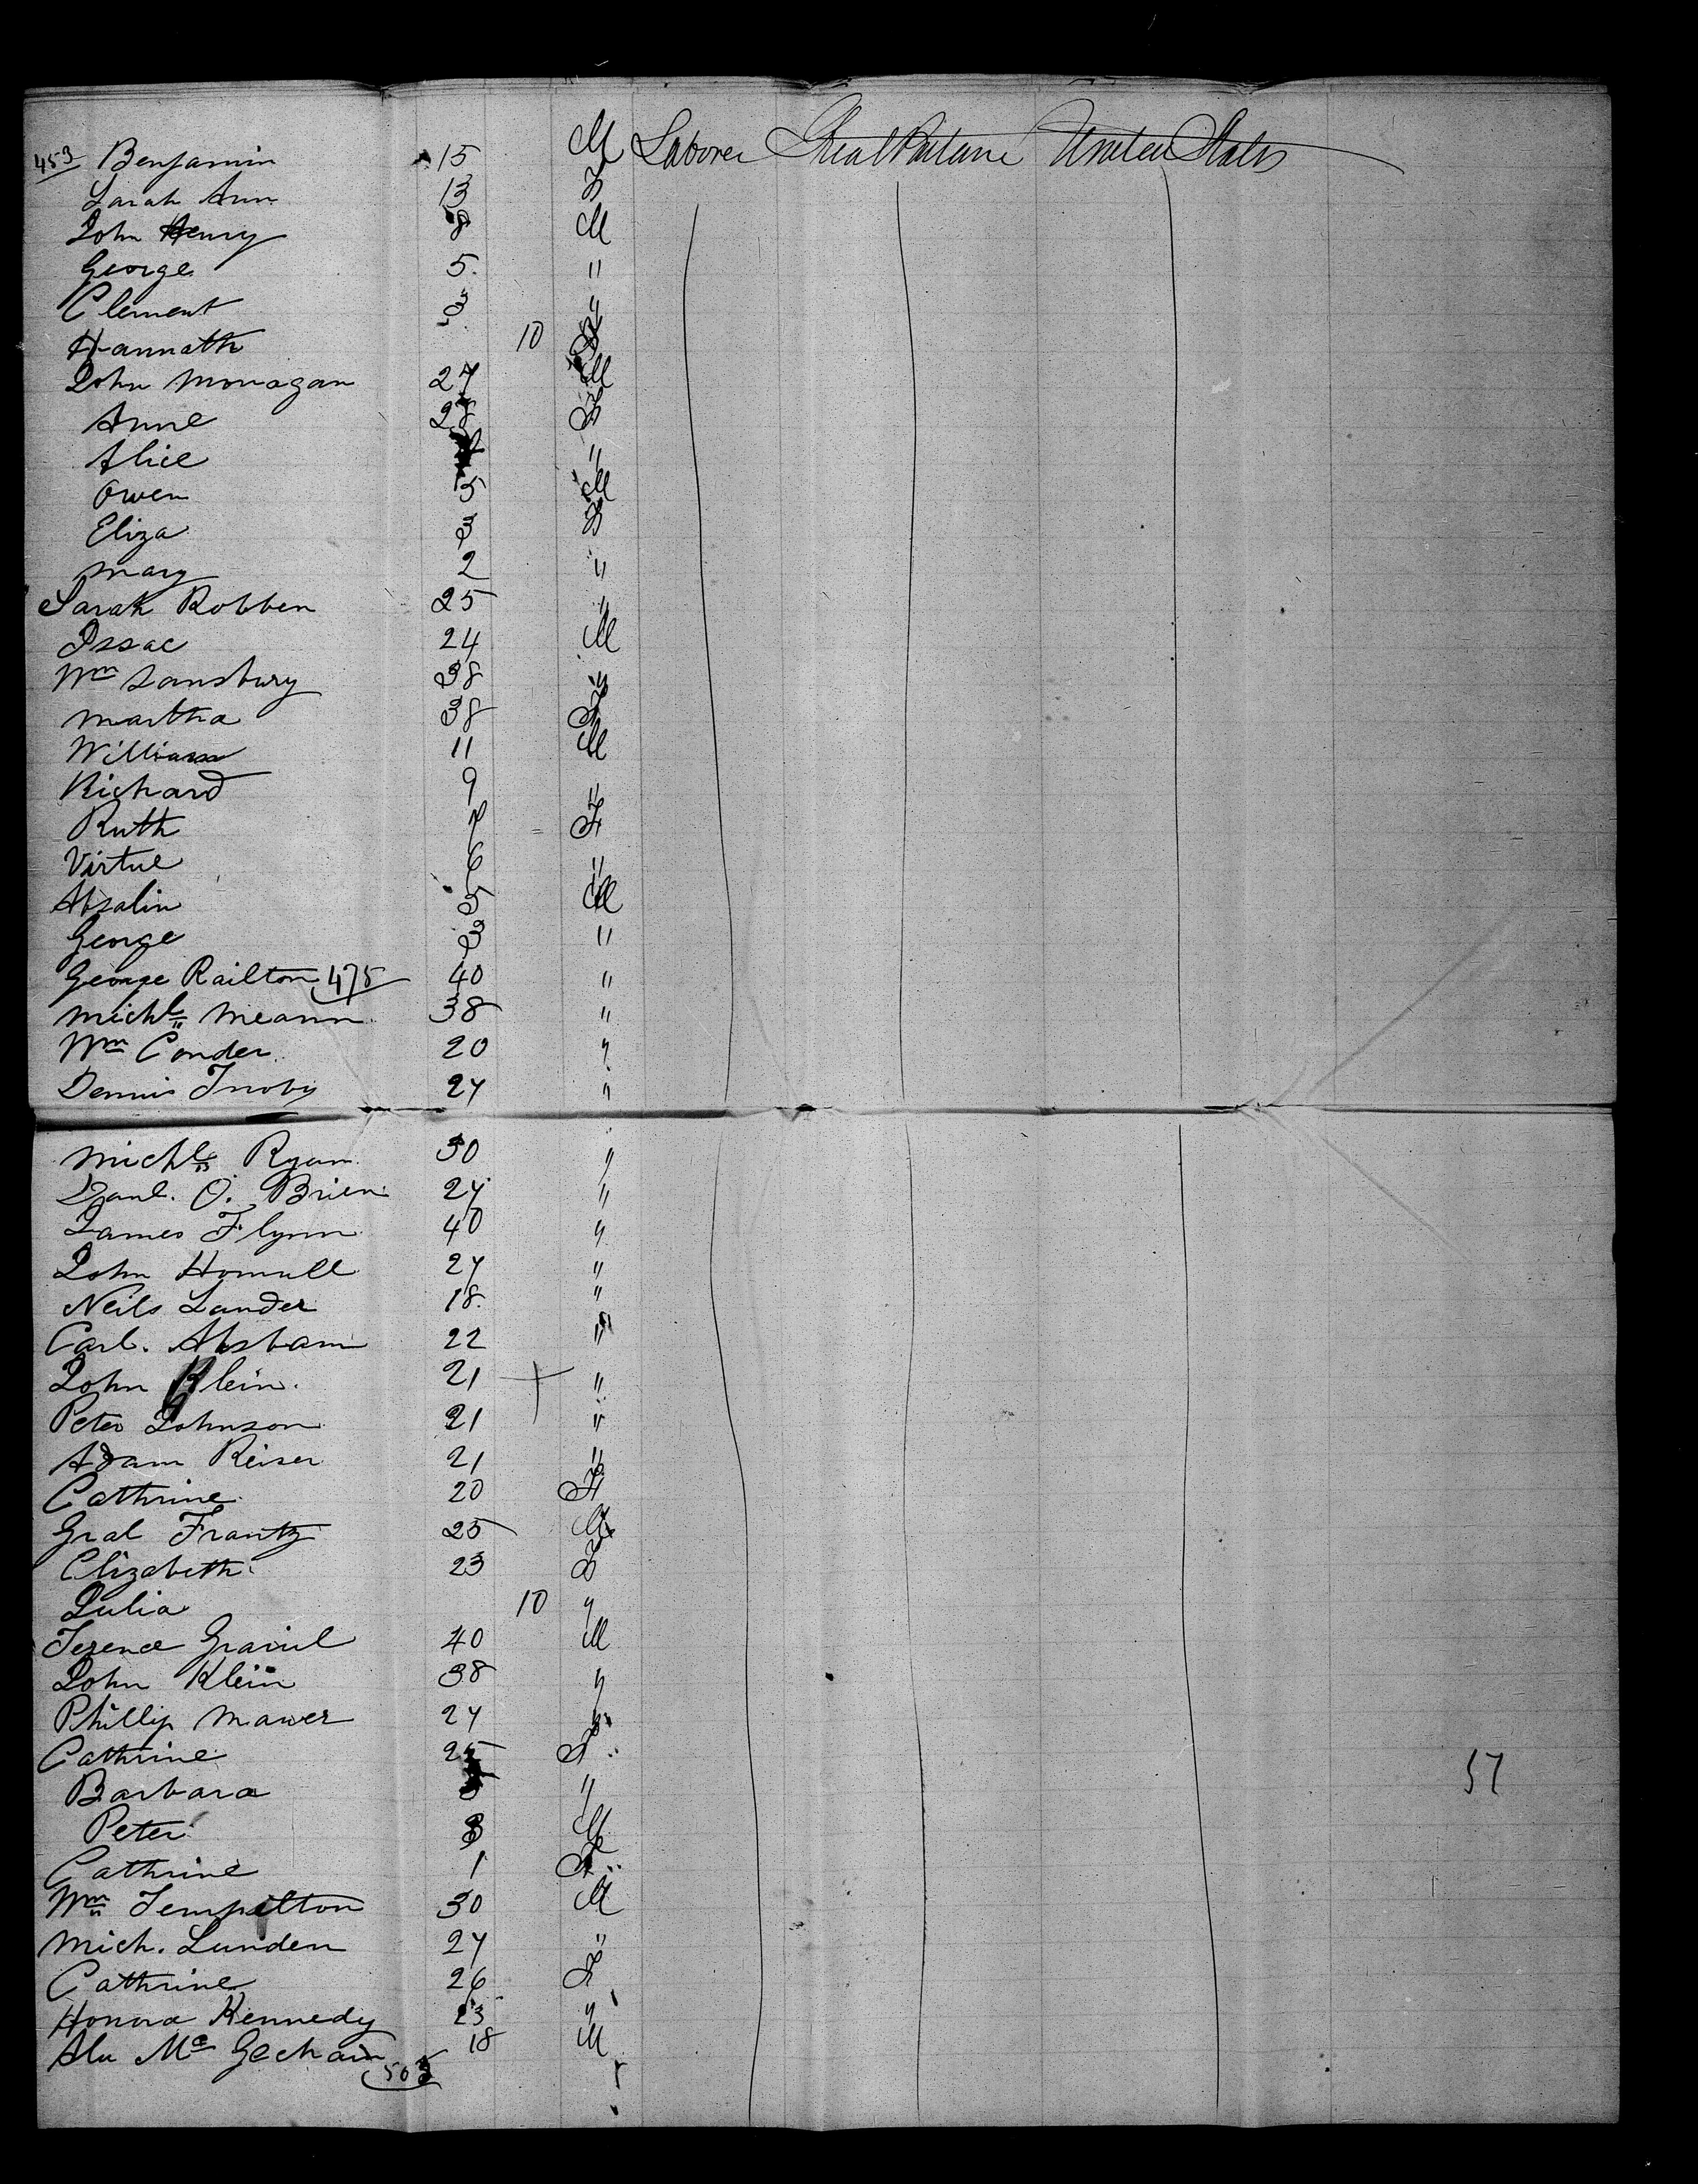 453 Benjamin 15 M Laborer Great Britain United States
Sarah Ann 13 F
John Henry 8 M
George 5 "
Clement 3 "
Hannath 10 F
John Monagan 27 M
Anne 28 F
Alice "
Owen 5 M
Eliza 3 F
Mary 2 "
Sarah Robben 25 "
Issac 24 M
Wm Sansbury 38 "
Martha 38 F
William 11 M
Richard 9 "
Ruth 7 F
Virtue 6 "
Absalin 5 M
George 3 "
George Railton 475 40 "
Michl Meann 38 "
Wm Conder 20 "
Dennis 27 "
Michl Ryan 30 "
Danl. O. Brien 27 "
James Flynn 40 "
John 27 "
Neils Lander 18 "
Carl. 22 "
John Klein 21 "
Peter Johnson 21 "
Adam Reiser 21 "
Cathrine 20 F
Gral Frantz 25 M
Elizabeth 23 F
Julia 10 "
Terence 40 M
John Klein 38 "
Phillip Mawer 27 "
Cathrine 25 F
Barbara "
Peter 3 M
Cathrine 1 F
Wm Tempelton 30 M
Mich. Lunden 27 "
Cathrine 26 F
Honora Kennedy 23 "
Mc 18 M
503
57